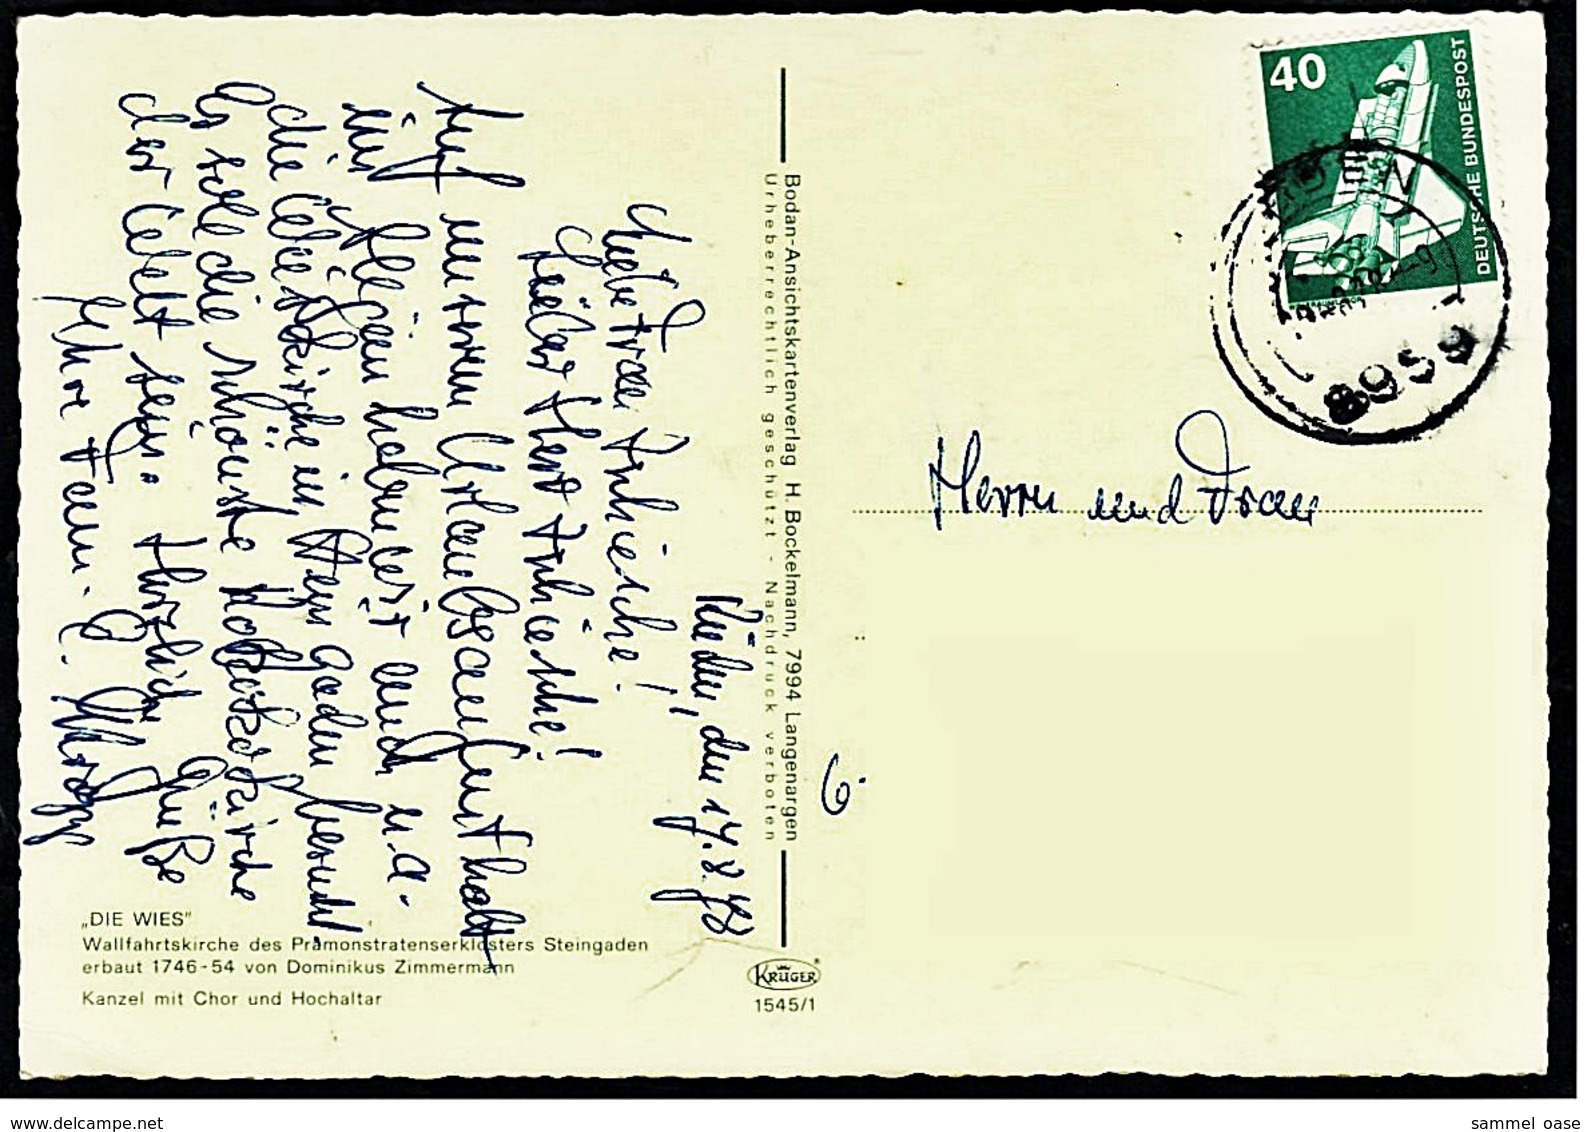 40
DEUTSCHE BUNDESPOST
8959
Herrn und Frau
Bodan-Ansichtskartenverlag H. Bockelmann, 7994 Langenargen
Urheberrechtlich geschützt - Nachdruck verboten
den 17.8.78
Liebe Frau
Lieber Herr
Auf unserem Urlaubsaufenthalt
in Füssen haben wir auch u. a.
die Wieskirche in Steingaden besucht.
Es soll die schönste Rokokokirche
der Welt sein. Herzliche Grüße
Ihre Fam. E.
„DIE WIES"
Wallfahrtskirche des Prämonstratenserklosters Steingaden
erbaut 1746-54 von Dominikus Zimmermann
Kanzel mit Chor und Hochaltar
KRÜGER
1545/1
www.delcampe.net
sammel_oase